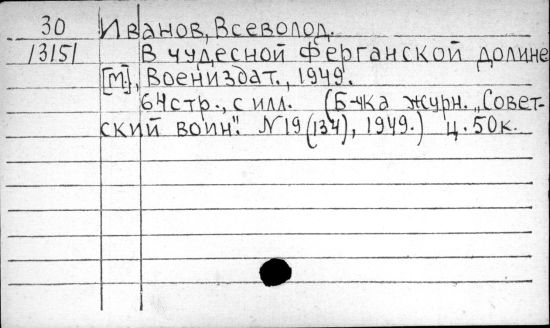 30 Иванов, Всеволод.
13151 В чудесной Ферганской долине
[М], Воениздат., 1949.
64 стр., с илл. (Б-чка журн. „Совет-
ский воин". N19 (134), 1949.) Ц. 50к.